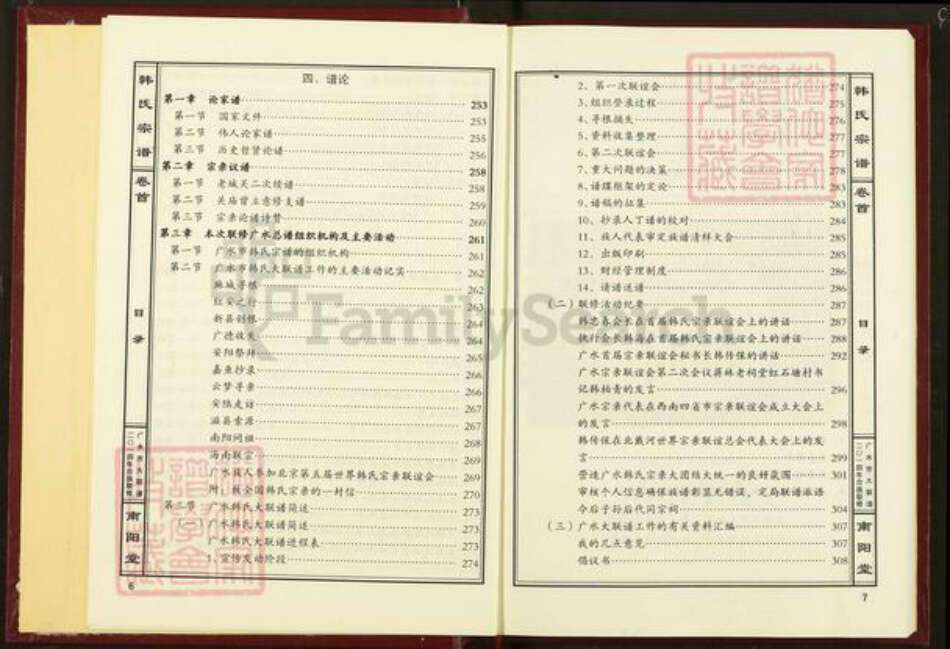 韩氏宗谱
卷首
目录
广水市大联谱
二〇一四年合族联修
南阳堂
6
四、谱论
第一章 论家谱 253
第一节 国家文件 253
第二节 伟人论家谱 255
第三节 历史哲贤论谱 256
第二章 宗亲议谱 258
第一节 老城关二次续谱 258
第二节 关庙曾立意修支谱 259
第三节 宗亲论谱诗赞 260
第三章 本次联修广水总谱组织机构及主要活动 261
第一节 广水市韩氏宗谱的组织机构 261
第二节 广水市韩氏大联谱工作的主要活动记实 262
麻城寻根 262
红安之行 263
新县创根 264
广德收失 264
安阳祭拜 265
嘉鱼抄录 266
云梦寻亲 266
安陆走访 267
滋县索源 267
南阳问祖 268
海南联宗 269
广水族人参加北京第五届世界韩氏宗亲联谊会 269
附：致全国韩氏宗亲的一封信 270
第三节 广水韩氏大联谱简述 273
(一) 广水韩氏大联谱简述 273
广水韩氏大联谱进程表 273
1、宣传发动阶段 274
2、第一次联谊会 274
3、组织登录过程 275
4、寻根摘失 276
5、资料收集整理 277
6、第二次联谊会 277
7、重大问题的决策 278
8、谱牒框架的定论 283
9、谱稿的征集 283
10、抄录人丁谱的校对 284
11、族人代表审定族谱清样大会 285
12、出版印刷 285
13、财经管理制度 286
14、请谱送谱 286
(二) 联修活动纪要 287
韩忠春会长在首届韩氏宗亲联谊会上的讲话 287
执行会长韩海在首届韩氏宗亲联谊会上的讲话 288
广水首届宗亲联谊会秘书长韩传保的讲话 292
广水宗亲联谊会第二次会议蒋林老祠堂虹石塘村书
记韩柏青的发言 296
广水宗亲代表在西南四省市宗亲联谊会成立大会上
的发言 298
韩传保在北戴河世界宗亲联谊总会代表大会上的发
言 299
营造广水韩氏宗亲大团结大统一的良好氛围 301
审核个人信息确保族谱彰显无错误，定局联谱派语
令后子孙后代同宗祠 304
(三) 广水大联谱工作的有关资料汇编 307
我的几点意见 307
倡议书 308
韩氏宗谱
卷首
目录
广水市大联谱
二〇一四年合族联修
南阳堂
7
FamilySearch